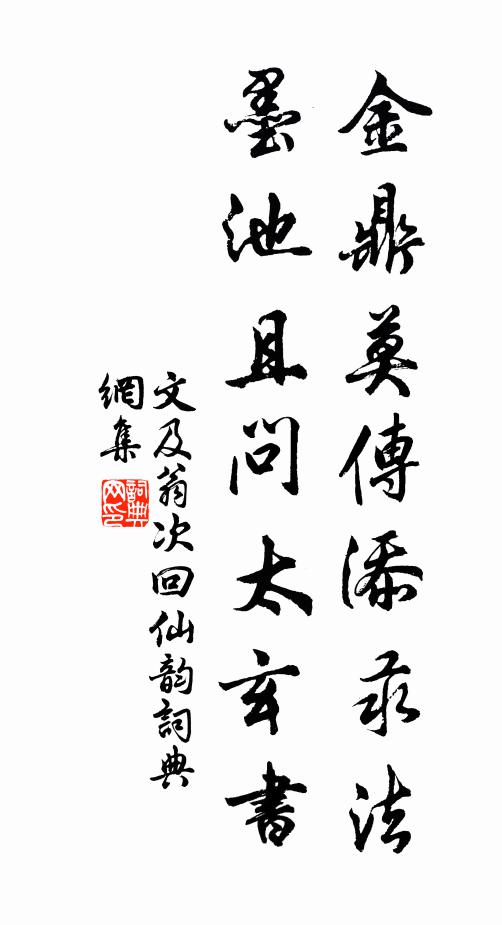 金鼎莫傳添汞法
墨池且問太玄書
文及翁次回仙韵詞典
網集
詞典
网印